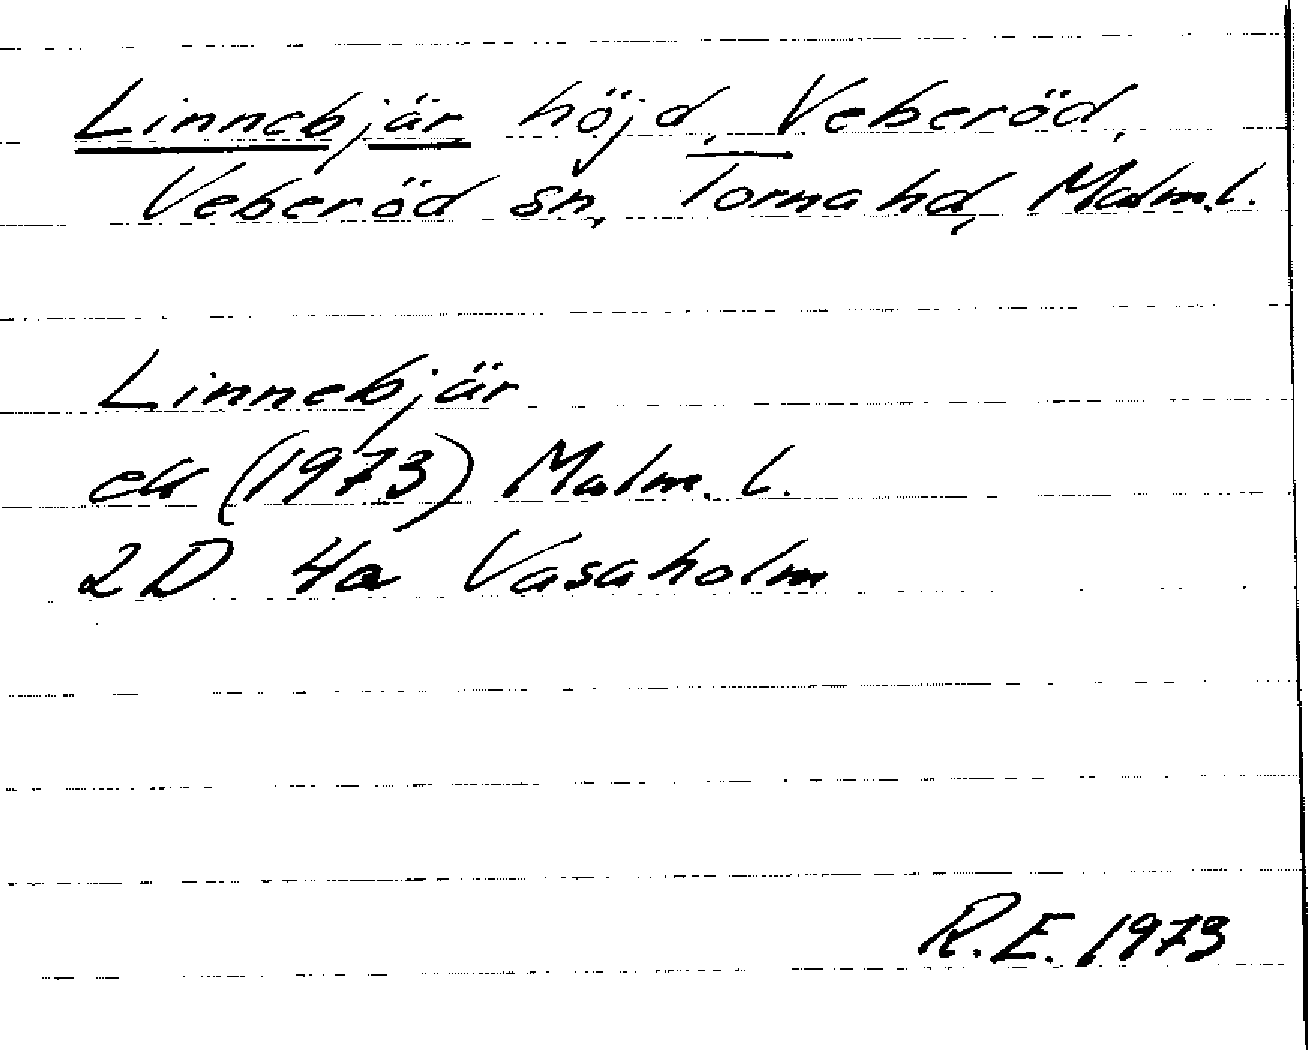 Linnebjär höjd, Veberöd,
Veberöd sn, Torna hd, Malm.l.
Linnebjär
ek (1973) Malm. l.
2D 4a Vasaholm
R.E. 1973